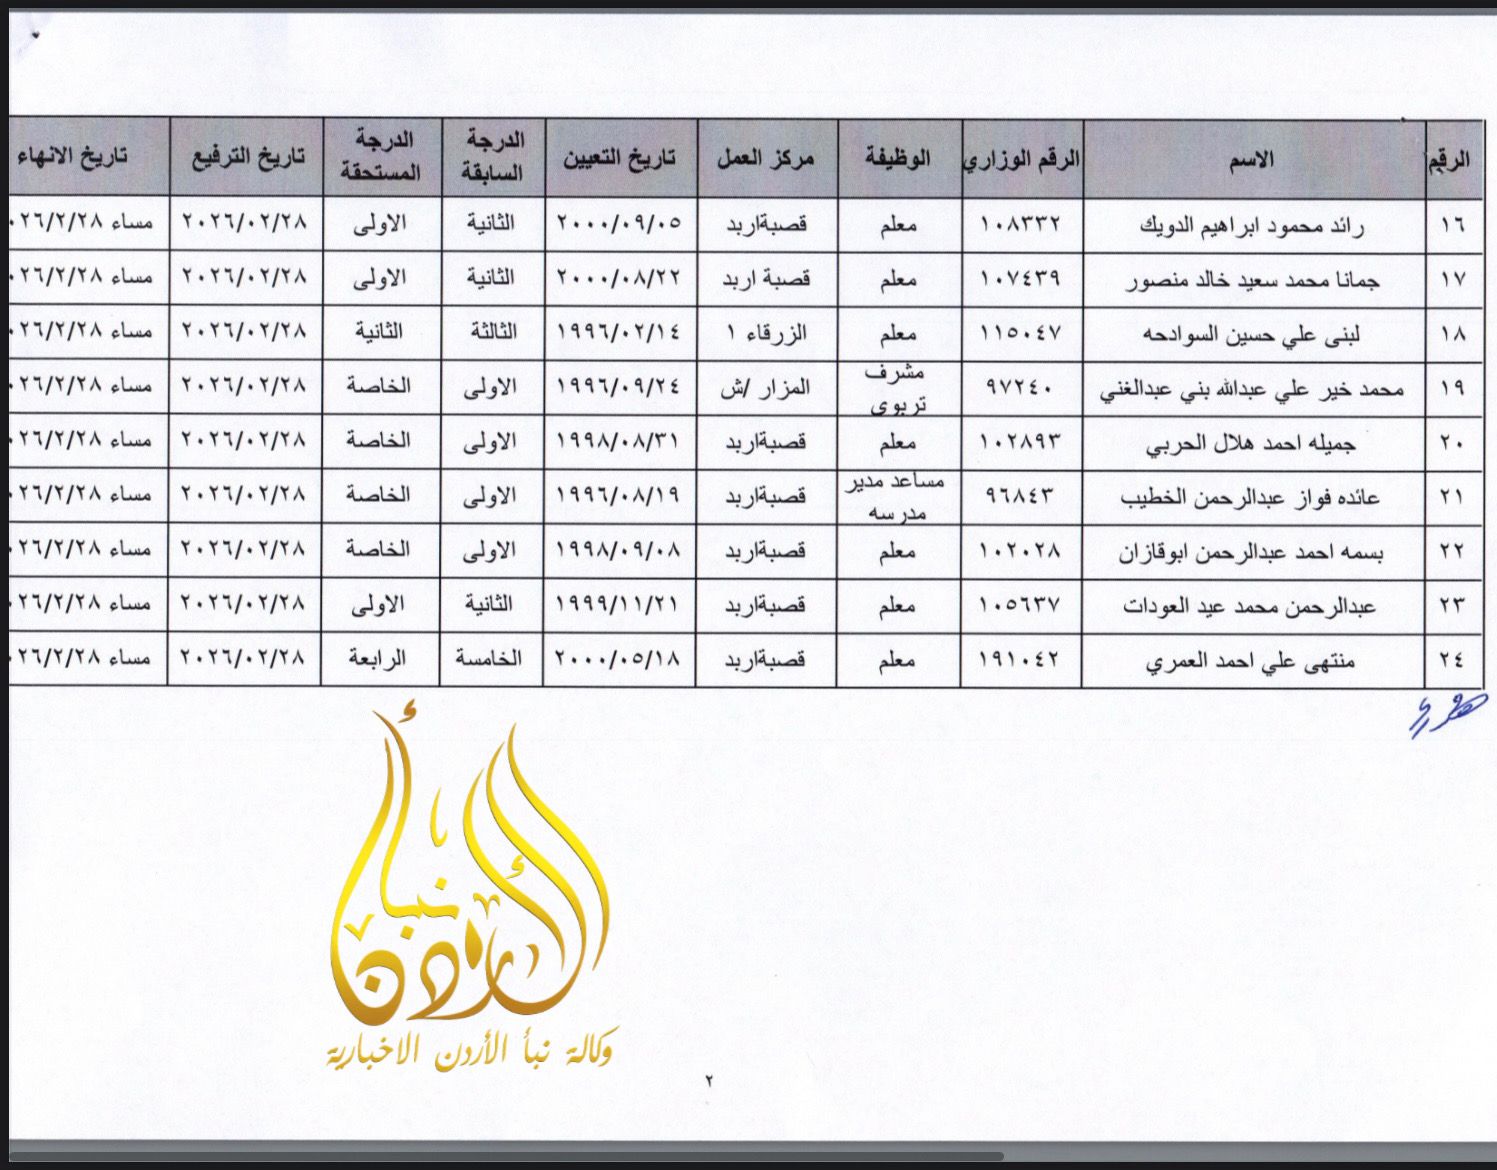 الرقم الاسم الرقم الوزاري الوظيفة مركز العمل تاريخ التعيين الدرجة السابقة الدرجة المستحقة تاريخ الترفيع تاريخ الانهاء
١٦ رائد محمود ابراهيم الدويك ١٠٨٣٣٢ معلم قصبةاربد ٢٠٠٠/٠٩/٠٥ الثانية الاولى ٢٠٢٦/٠٢/٢٨ مساء ٠٢٦/٢/٢٨
١٧ جمانا محمد سعيد خالد منصور ١٠٧٤٣٩ معلم قصبة اربد ٢٠٠٠/٠٨/٢٢ الثانية الاولى ٢٠٢٦/٠٢/٢٨ مساء ٠٢٦/٢/٢٨
١٨ لبنى علي حسين السوادحه ١١٥٠٤٧ معلم الزرقاء ١ ١٩٩٦/٠٢/١٤ الثالثة الثانية ٢٠٢٦/٠٢/٢٨ مساء ٠٢٦/٢/٢٨
١٩ محمد خير علي عبدالله بني عبدالغني ٩٧٢٤٠ مشرف تربوي المزار /ش ١٩٩٦/٠٩/٢٤ الاولى الخاصة ٢٠٢٦/٠٢/٢٨ مساء ٠٢٦/٢/٢٨
٢٠ جميله احمد هلال الحربي ١٠٢٨٩٣ معلم قصبةاربد ١٩٩٨/٠٨/٣١ الاولى الخاصة ٢٠٢٦/٠٢/٢٨ مساء ٠٢٦/٢/٢٨
٢١ عائده فواز عبدالرحمن الخطيب ٩٦٨٤٣ مساعد مدير مدرسه قصبةاربد ١٩٩٦/٠٨/١٩ الاولى الخاصة ٢٠٢٦/٠٢/٢٨ مساء ٠٢٦/٢/٢٨
٢٢ بسمه احمد عبدالرحمن ابوقازان ١٠٢٠٢٨ معلم قصبةاربد ١٩٩٨/٠٩/٠٨ الاولى الخاصة ٢٠٢٦/٠٢/٢٨ مساء ٠٢٦/٢/٢٨
٢٣ عبدالرحمن محمد عيد العودات ١٠٥٦٣٧ معلم قصبةاربد ١٩٩٩/١١/٢١ الثانية الاولى ٢٠٢٦/٠٢/٢٨ مساء ٠٢٦/٢/٢٨
٢٤ منتهى علي احمد العمري ١٩١٠٤٢ معلم قصبةاربد ٢٠٠٠/٠٥/١٨ الخامسة الرابعة ٢٠٢٦/٠٢/٢٨ مساء ٠٢٦/٢/٢٨
نبأ الأردن
وكالة نبأ الأردن الاخبارية
٢